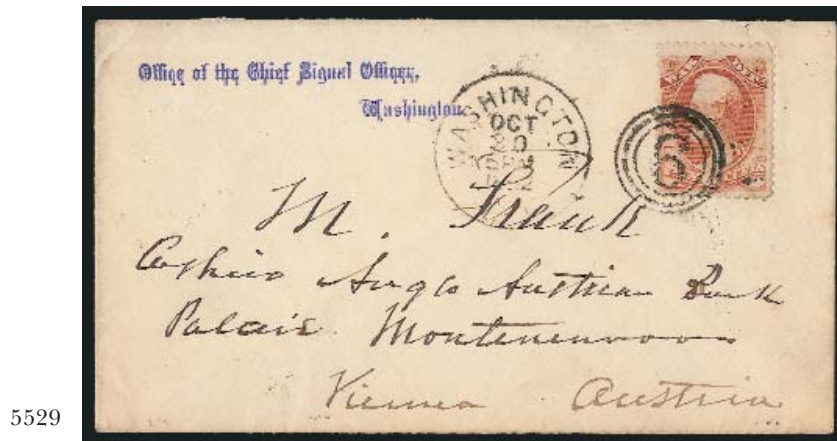 Office of the Chief Signal Officer,
Washington.
WASHINGTON
OCT
20
6
M. Frank
Anglo Austrian Bank
Palais Montenuovo
Vienna Austria
5529